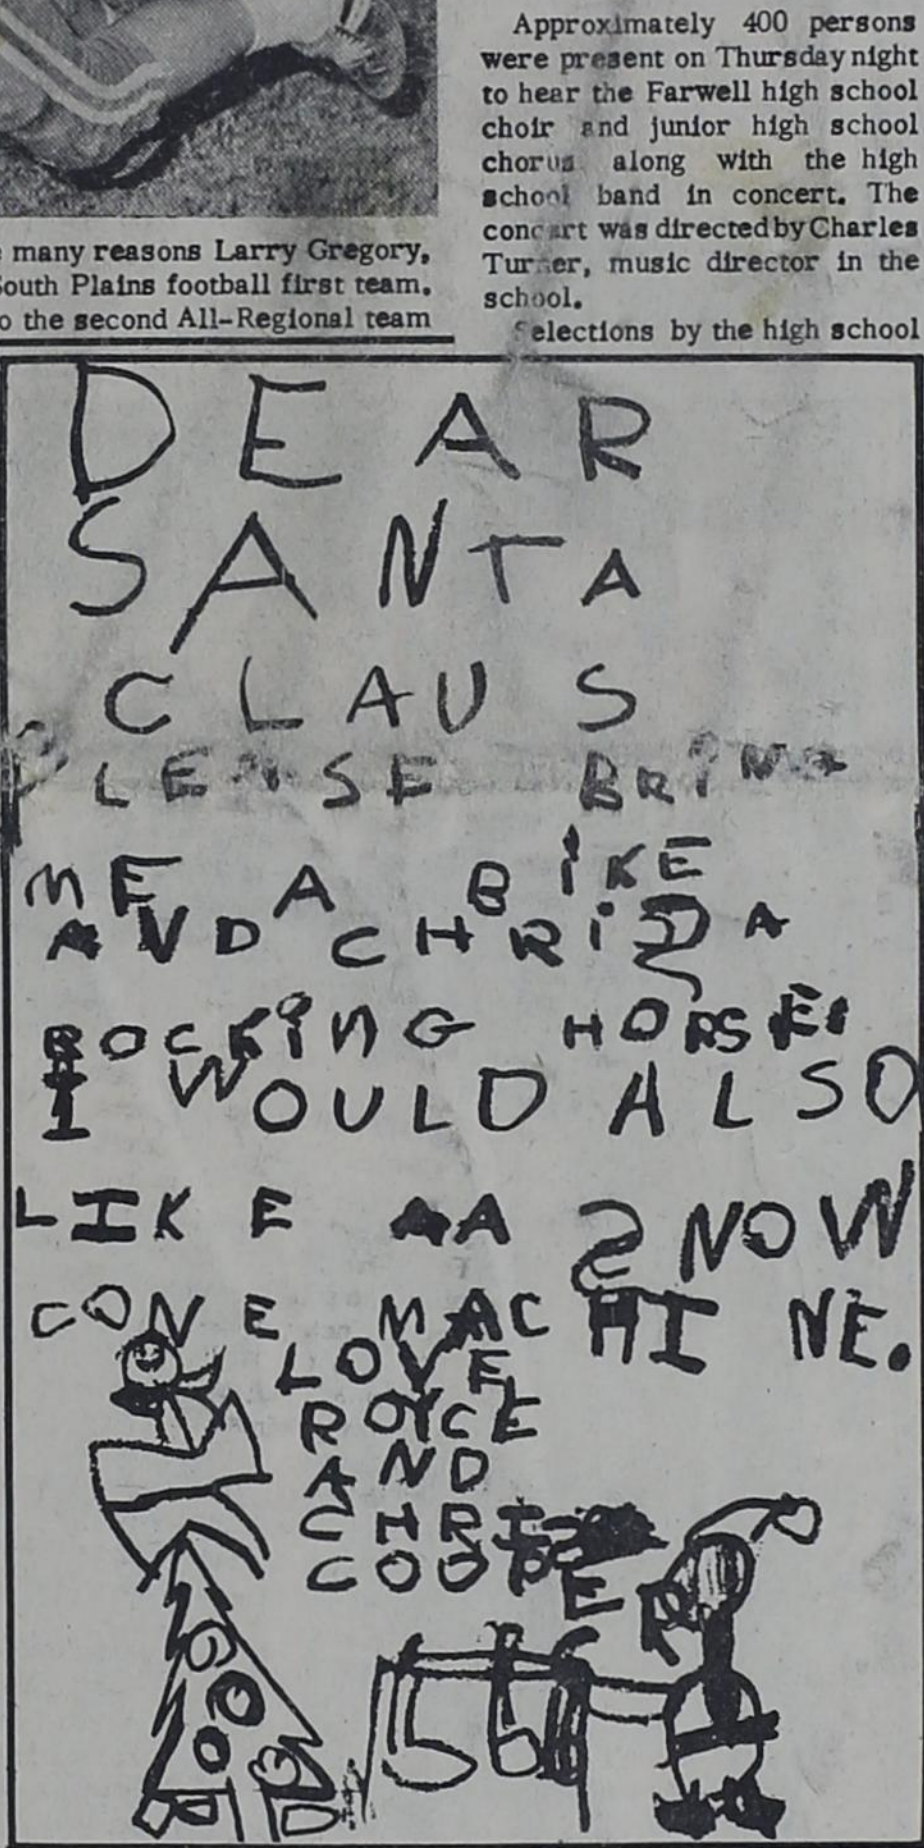 many reasons Larry Gregory,
South Plains football first team.
o the second All-Regional team
Approximately 400 persons
were present on Thursday night
to hear the Farwell high school
choir and junior high school
chorus along with the high
school band in concert. The
concert was directed by Charles
Turner, music director in the
school.
Selections by the high school
DEAR
SANTA
CLAUS
PLEASE BRING
ME A BIKE
AND CHRIS A
ROCKING HORSE.
I WOULD ALSO
LIKE A A SNOW
CONE MACHINE.
LOVE,
ROYCE
AND
CHRIS
COOPER